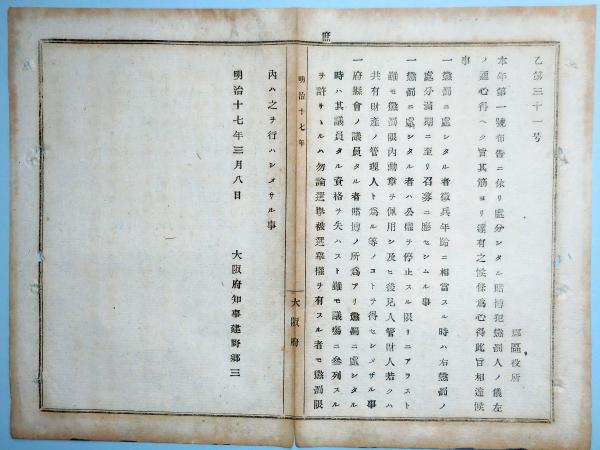 庶
乙第三十一号
郡區役所
本年第一號布告ニ依リ處分シタル賭博犯懲罰人ノ儀左
ノ通心得ヘク旨其筋ヨリ達有之候條為心得此旨相達候
事
一懲罰ニ處シタル者徴兵年齢ニ相當スル時ハ右懲罰ノ
處分満期ニ至リ召募ニ應セシムル事
一懲罰ニ處シタル者ハ公權ヲ停止スル限リニアラスト
雖モ懲罰限内勳章ヲ佩用シ及ヒ後見人管財人若クハ
共有財産ノ管理人ト為ル等ノコトヲ得セシメザル事
一府縣會ノ議員タル者賭博ノ所為アリ懲罰ニ處シタル
時ハ其議員タル資格ヲ失ハスト雖モ議塲ニ參列スル
ヲ許サヽルハ勿論選擧被選擧權ヲ有スル者モ懲罰限
明治十七年
大阪府
内ハ之ヲ行ハシメサル事
明治十七年三月八日
大阪府知事建野郷三